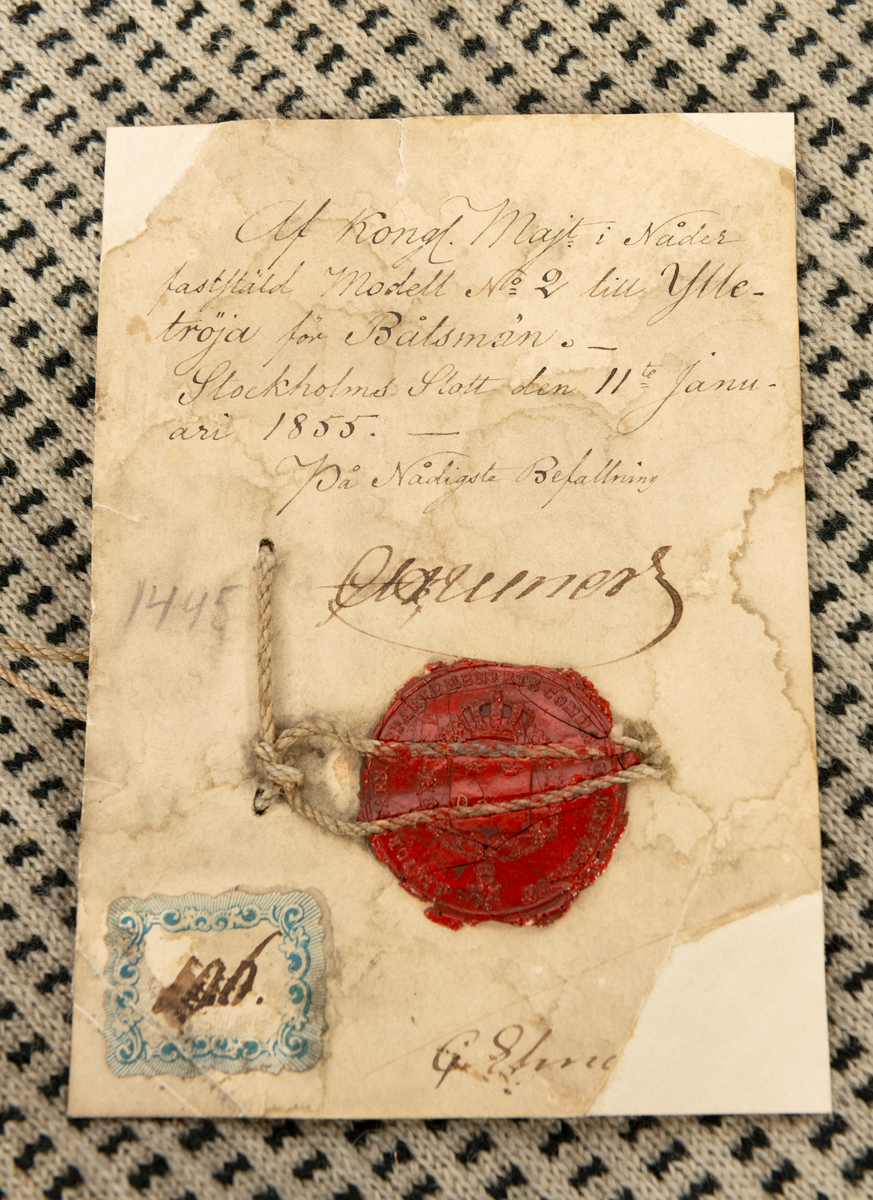 Af Kongl. Majt. i Nåder
faststäld Modell No 2 till Ylle-
tröja för Båtsmän. —
Stockholms Slott den 11te Janu-
ari 1855. —
På Nådigste Befallning
1495
PARTEMENTETS COM
506.